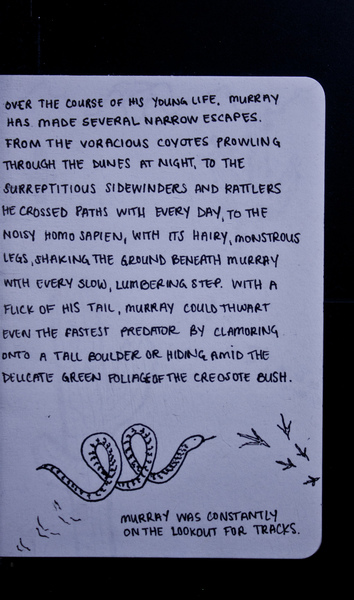 OVER THE COURSE OF HIS YOUNG LIFE, MURRAY
HAS MADE SEVERAL NARROW ESCAPES.
FROM THE VORACIOUS COYOTES PROWLING
THROUGH THE DUNES AT NIGHT, TO THE
SURREPTITIOUS SIDEWINDERS AND RATTLERS
HE CROSSED PATHS WITH EVERY DAY, TO THE
NOISY HOMO SAPIEN, WITH ITS HAIRY, MONSTROUS
LEGS, SHAKING THE GROUND BENEATH MURRAY
WITH EVERY SLOW, LUMBERING STEP. WITH A
FLICK OF HIS TAIL, MURRAY COULD THWART
EVEN THE FASTEST PREDATOR BY CLAMORING
ONTO A TALL BOULDER OR HIDING AMID THE
DELICATE GREEN FOLIAGE OF THE CREOSOTE BUSH.
MURRAY WAS CONSTANTLY
ON THE LOOKOUT FOR TRACKS.